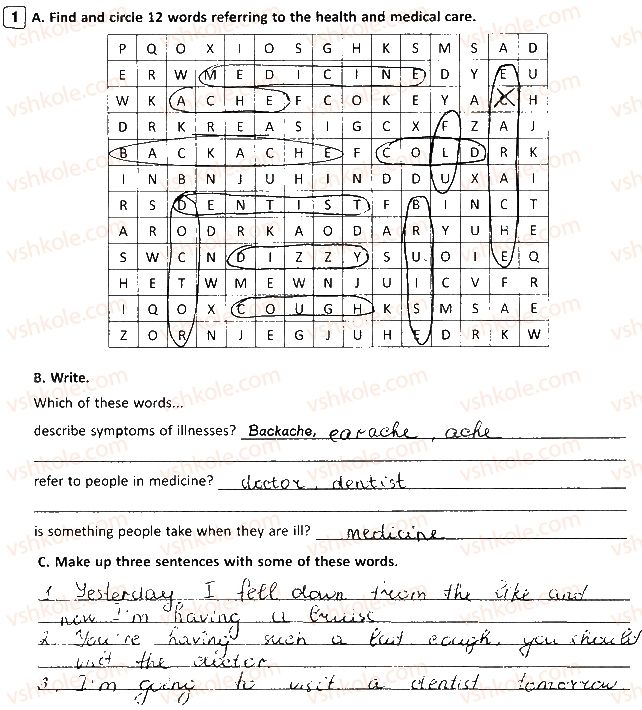 1 A. Find and circle 12 words referring to the health and medical care.
P Q O X I O S G H K S M S A D
E R W M E D I C I N E D Y E U
W K A C H E F C O K E Y A X H
D R K R E A S I G C X F Z A J
B A C K A C H E F C O L D R K
I N B N J U H I N D D U X A I
R S D E N T I S T F B I N C T
A R O D R K A O D A R Y U H E
S W C N D I Z Z Y S U O I E Q
H E T W M E W N J U I C V F R
I Q O X C O U G H K S M S A E
Z O R N J E G J U H E D R K W
B. Write.
Which of these words...
describe symptoms of illnesses? Backache, earache, ache
refer to people in medicine? doctor, dentist
is something people take when they are ill? medicine
C. Make up three sentences with some of these words.
1. Yesterday I fell down from the bike and
now I'm having a bruise
2. You're having such a bad cough, you should
visit the doctor.
3. I'm going to visit a dentist tomorrow
vshkole.com